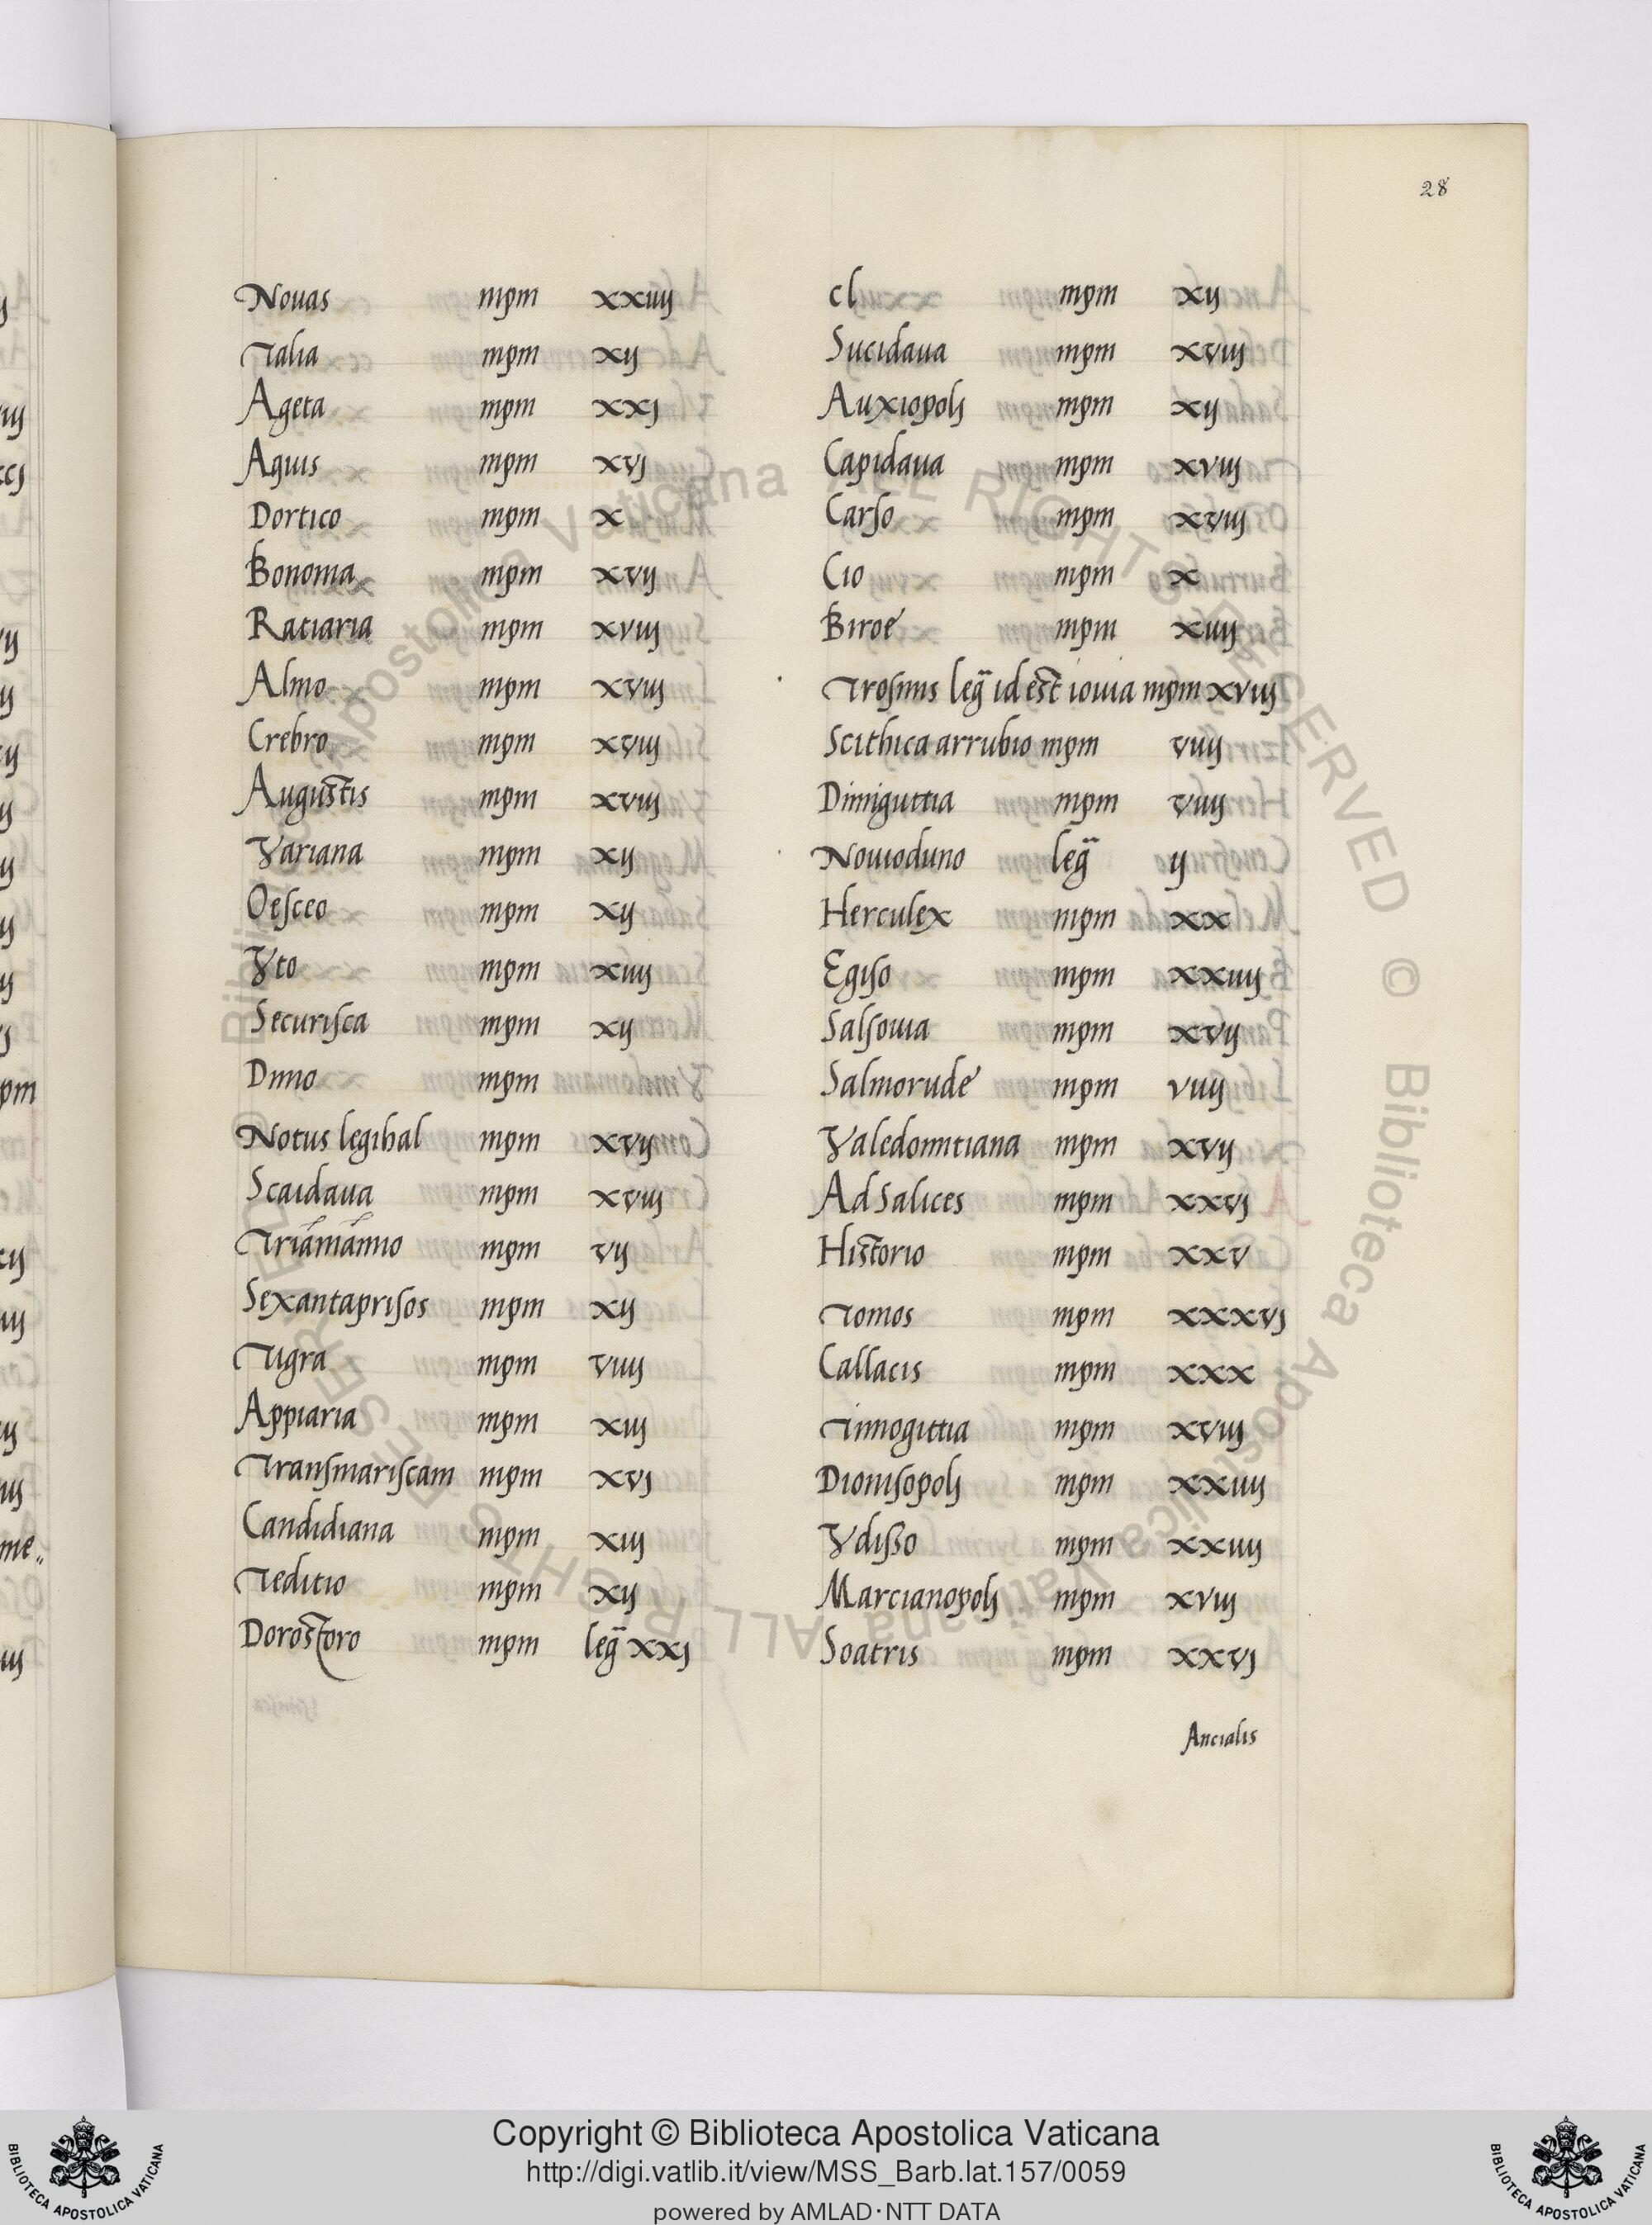 28
Nouas mpm xxiiij
Talia mpm xij
Ageta mpm xxj
Aquis mpm xvj
Dortico mpm x
Bononia mpm xvij
Ratiaria mpm xviij
Almo mpm xviij
Crebro mpm xviij
Augustis mpm xviij
Variana mpm xij
Oesceo mpm xij
Vto mpm xiiij
Securisca mpm xij
Dimo mpm
Notus legibal mpm xvij
Scaidaua mpm xviij
mpm vij
Sexantaprisos mpm xij
Tigra mpm viiij
Appiaria mpm xiij
Transmariscam mpm xvj
Candidiana mpm xiij
Teditio mpm xij
Dorostoro mpm leg̃ xxj
cl mpm xij
Sucidaua mpm xviij
Auxiopolj mpm xij
Capidaua mpm xviij
Carso mpm xviij
Cio mpm x
Biroe mpm xiiij
Trosmis leg̃ id est iouia mpm xviij
Scithica arrubio mpm viiij
Diniguttia mpm viiij
Nouioduno leg̃ ij
Herculex mpm xx
Egiso mpm xxiiij
Salsouia mpm xvij
Salmorude mpm viiij
Valedomitiana mpm xvij
Ad Salices mpm xxvj
Historio mpm xxv
Tomos mpm xxxvj
Callacis mpm xxx
Timogittia mpm xviij
Dionisopolj mpm xxiiij
Vdisso mpm xxiiij
Marcianopolj mpm xviij
Soatris mpm xxvj
Ancialis
Copyright © Biblioteca Apostolica Vaticana
http://digi.vatlib.it/view/MSS_Barb.lat.157/0059
powered by AMLAD·NTT DATA